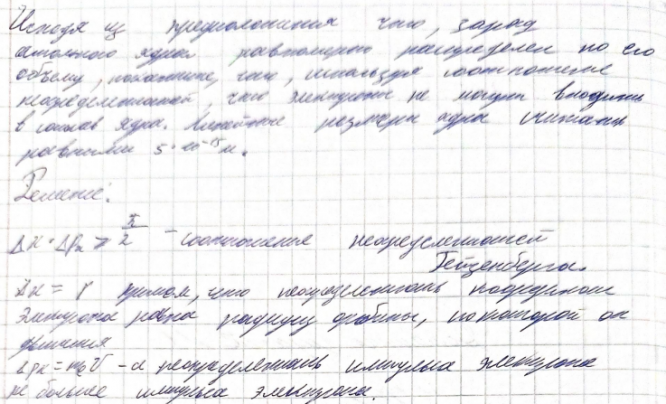 Исходя из предположения что, заряд
атомного ядра равномерно распределен по его
объему, покажите, что, используя соотношение
неопределенностей, что электроны не могут входить
в состав ядра. Линейные размеры ядра считать
равными 5·10⁻¹⁵ м.
Решение:
Δx·Δpₓ ≥ ħ/2 – соотношение неопределенностей
Гейзенберга.
Δx = r примем, что неопределенность координаты
электрона равна радиусу орбиты, по которой он
движется
Δpₓ = m₀V – а неопределенность импульса электрона
не больше импульса электрона.